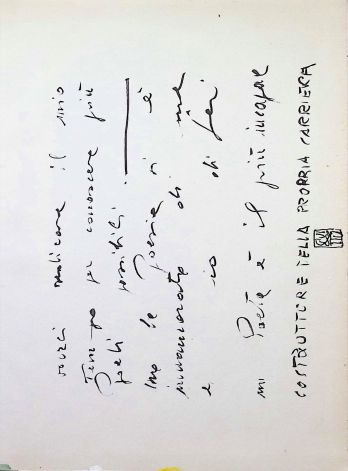 vorrei il mio
Tempo per conoscere più
poeti possibili
la Poesia si è
innamorata di me
e io di lei.
un Poeta è il più incapace
COSTRUTTORE DELLA PROPRIA CARRIERA